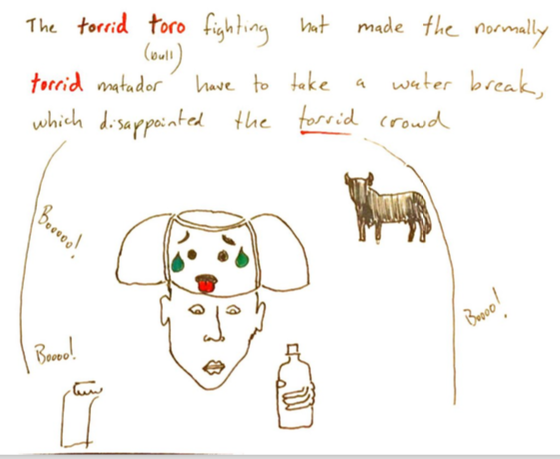 The torrid toro fighting hat made the normally
(bull)
torrid matador have to take a water break,
which disappointed the torrid crowd
Booooo!
Boooo!
Boooo!